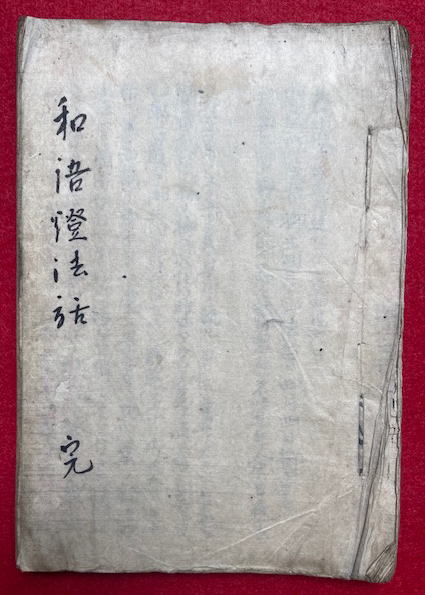 和語燈法話 完